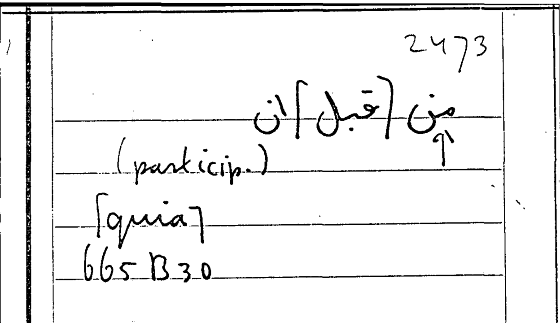 2473
من [قبل] ان
↑
(particip.)
[quia]
665 B 30